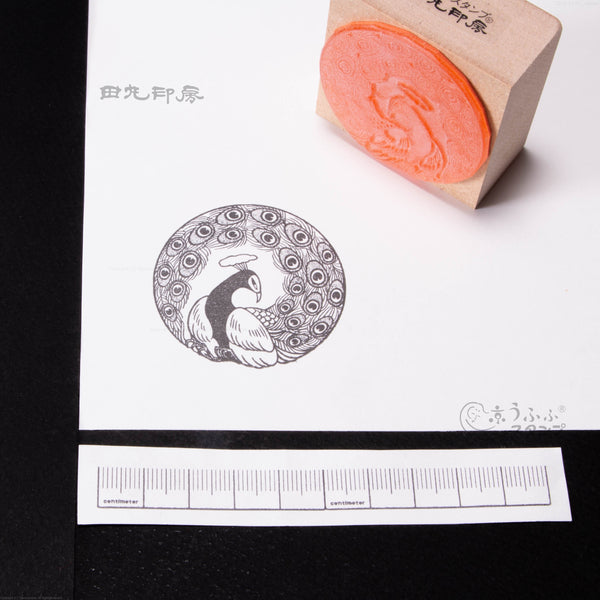 スタンプ®
田丸印房
田丸印房
京うふふ®
スタンプ
centimeter
centimeter